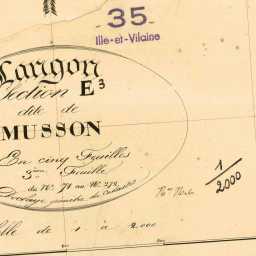 35
Ille-et-Vilaine
Langon
Section E³
dite de
MUSSON
En cinq Feuilles
3ème Feuille
du N° 71 au N° 272
1/2000
elle de 1 à 2.000